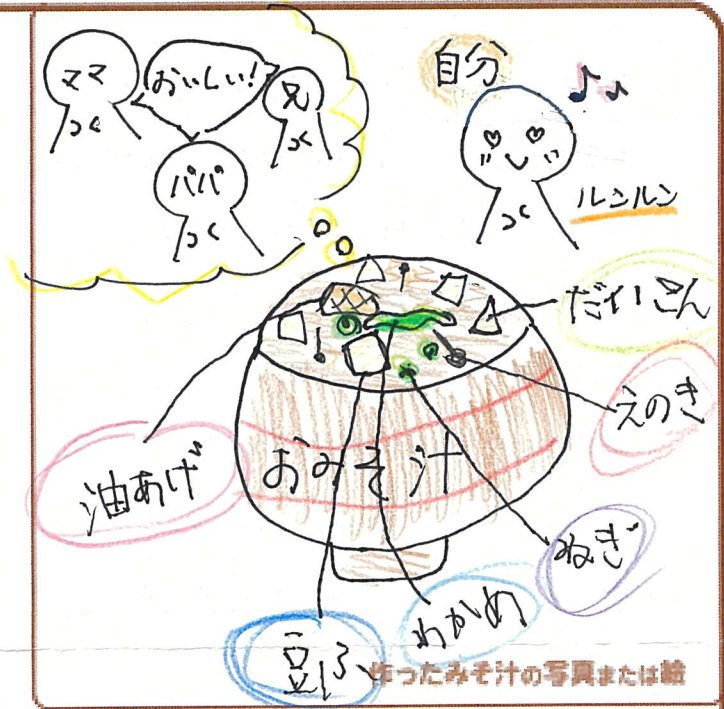 ママ
おいしい!
兄
パパ
自分
ルンルン
だいこん
えのき
油あげ
おみそ汁
ねぎ
わかめ
豆ふ
作ったみそ汁の写真または絵